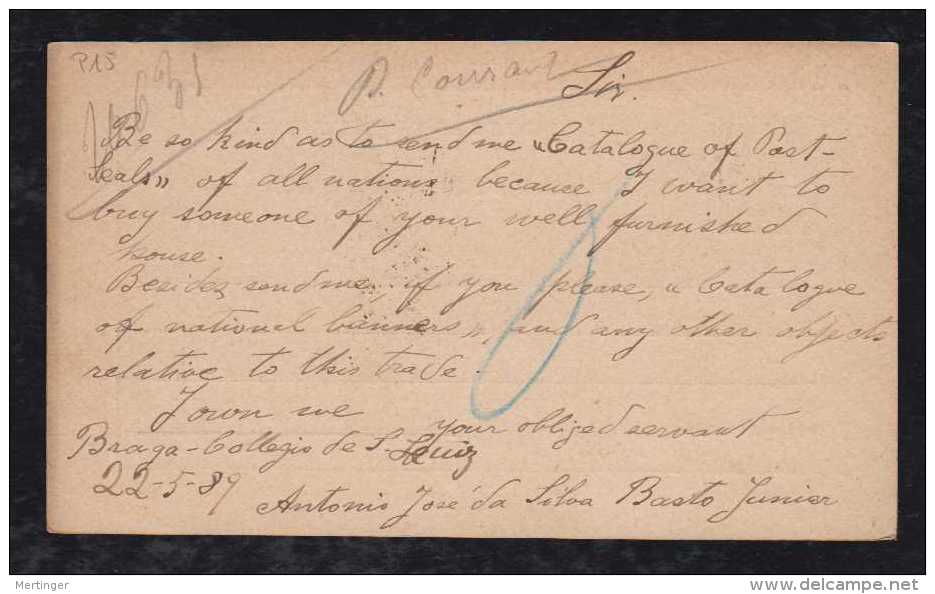 P15
P. Courant
Sir.
Be so kind as to send me "Catalogue of Post-
Seals" of all nations because I want to
buy someone of your well furnished
house.
Besides send me, if you please, "Catalogue
of national banners", and any other objects
relative to this trade.
I own me
your obliged servant
Braga - Collegio de S. Luiz
22-5-89
Antonio José da Silva Basto Junior
Mertinger
delcampe.net